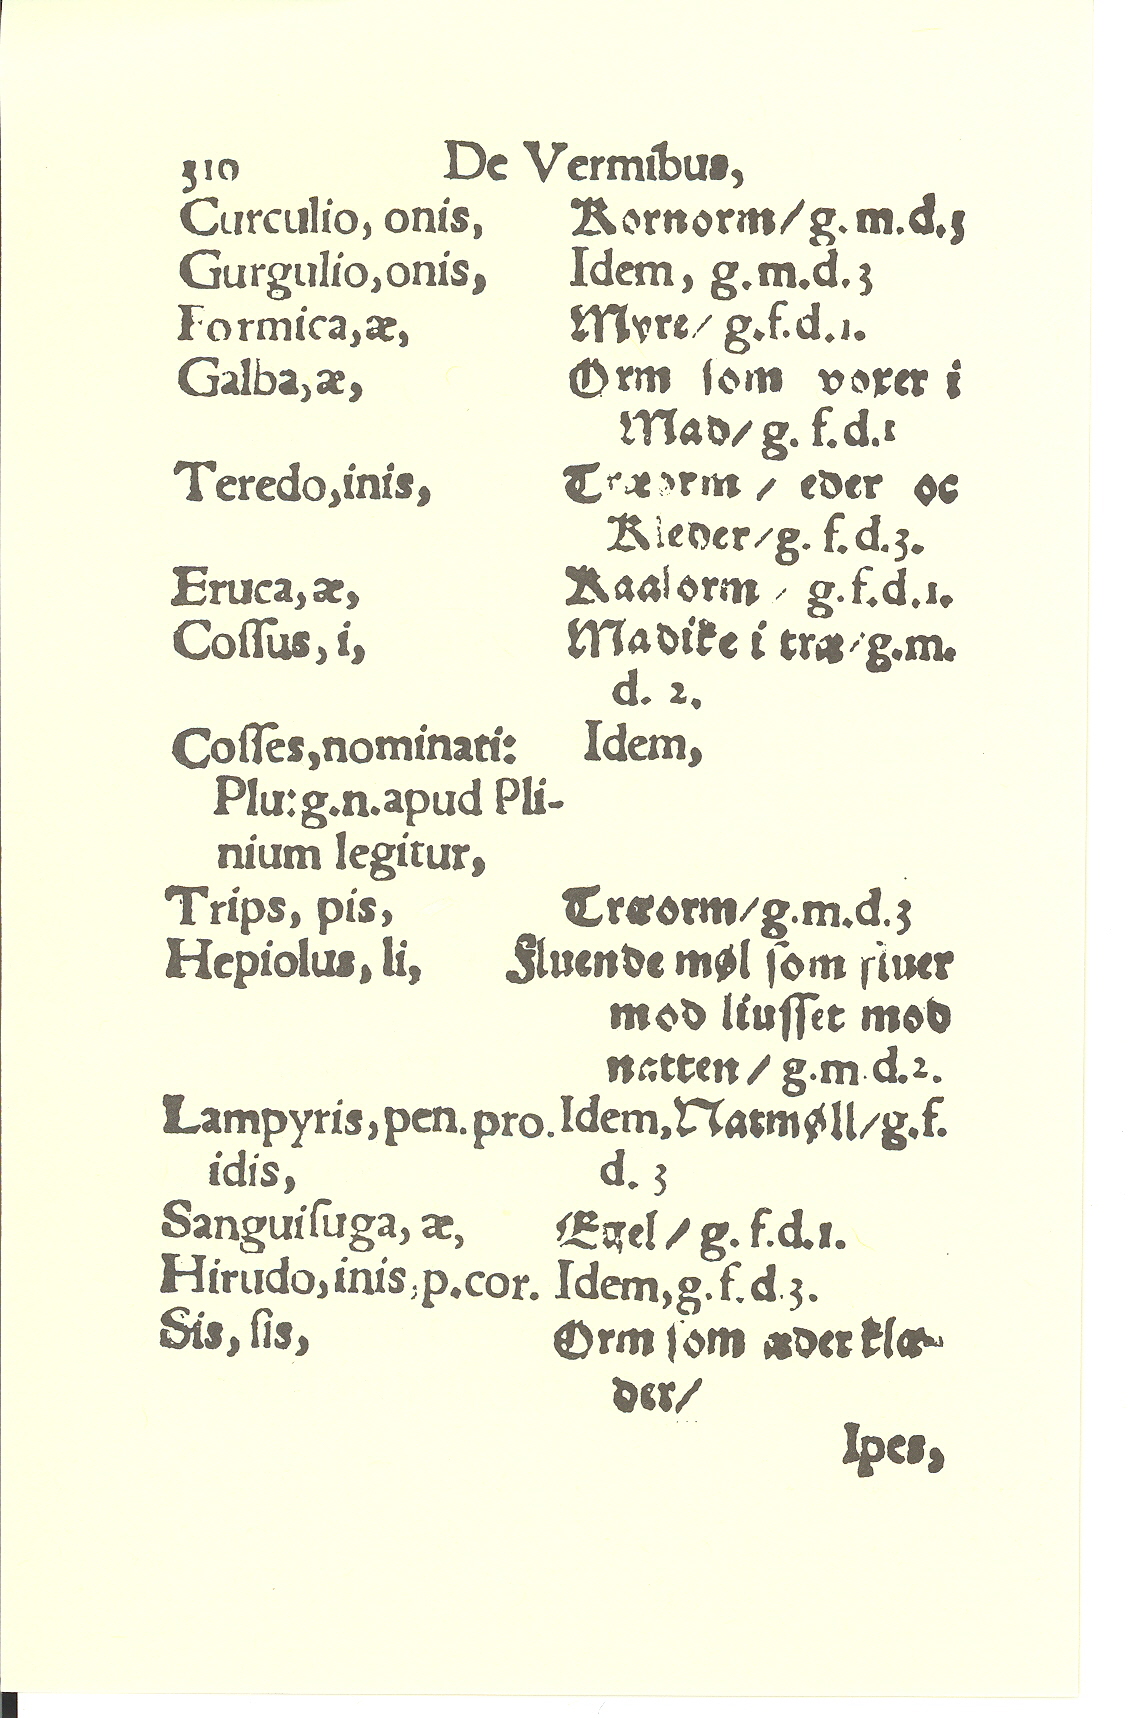 310 De Vermibus,
Curculio, onis, Kornorm/ g. m.d.3
Gurgulio,onis, Idem, g.m.d.3
Formica,æ, Myre/ g.f.d.1.
Galba,æ, Orm ſom voxer i
Mad/ g. f.d.1
Teredo,inis, Træorm / eder oc
Kleder/g. f.d.3.
Eruca,æ, Kaalorm / g.f.d.1.
Coſſus, i, Madike i træ/g.m.
d. 2.
Coſſes,nominati: Idem,
Plu:g.n.apud Pli-
nium legitur,
Trips, pis, Træorm/g.m.d.3
Hepiolus, li, Fluende møl ſom fluer
mod liuſſet mod
natten / g.m.d.2.
Lampyris,pen.pro. Idem,Natmøll/g.f.
idis, d. 3
Sanguiſuga, æ, Egel / g. f.d.1.
Hirudo,inis,p.cor. Idem,g.f.d.3.
Sis, ſis, Orm ſom æder klæ-
der/
Ipes,